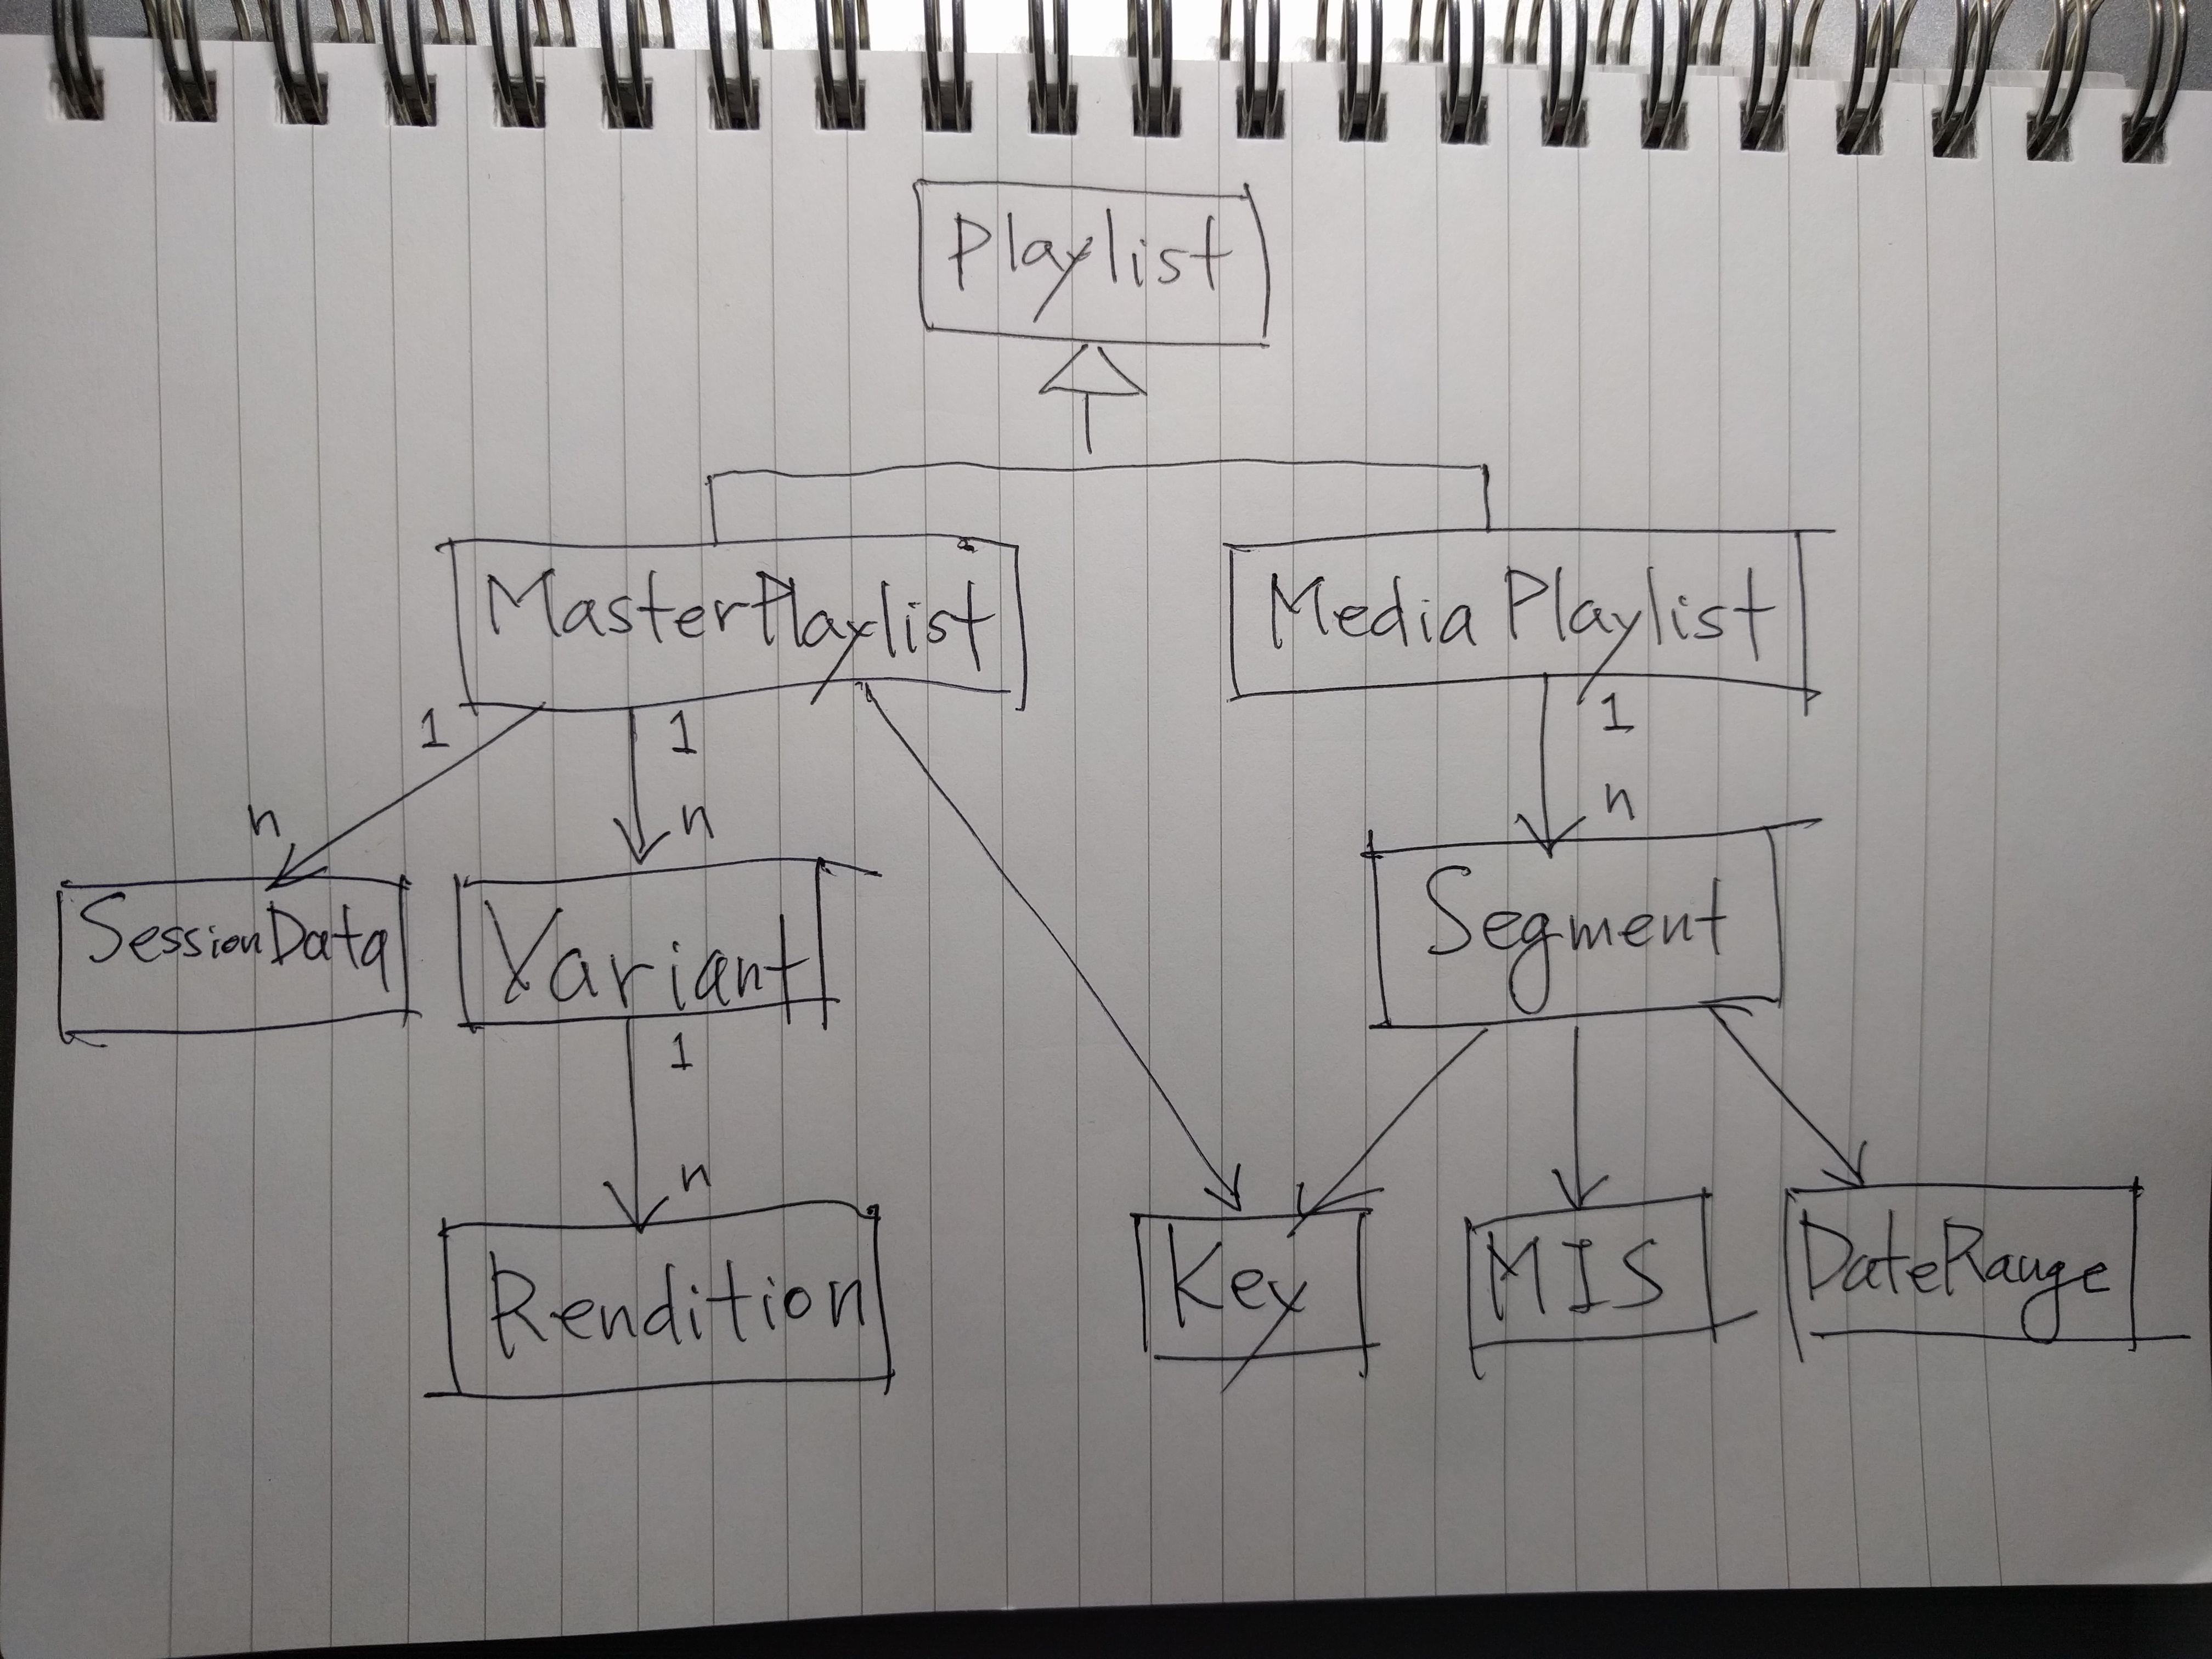 Playlist
MasterPlaylist
Media Playlist
1
1
1
n
n
n
SessionData
Variant
Segment
1
n
Rendition
Key
MIS
DateRange